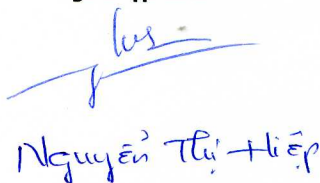 Nguyễn Thị Hiệp